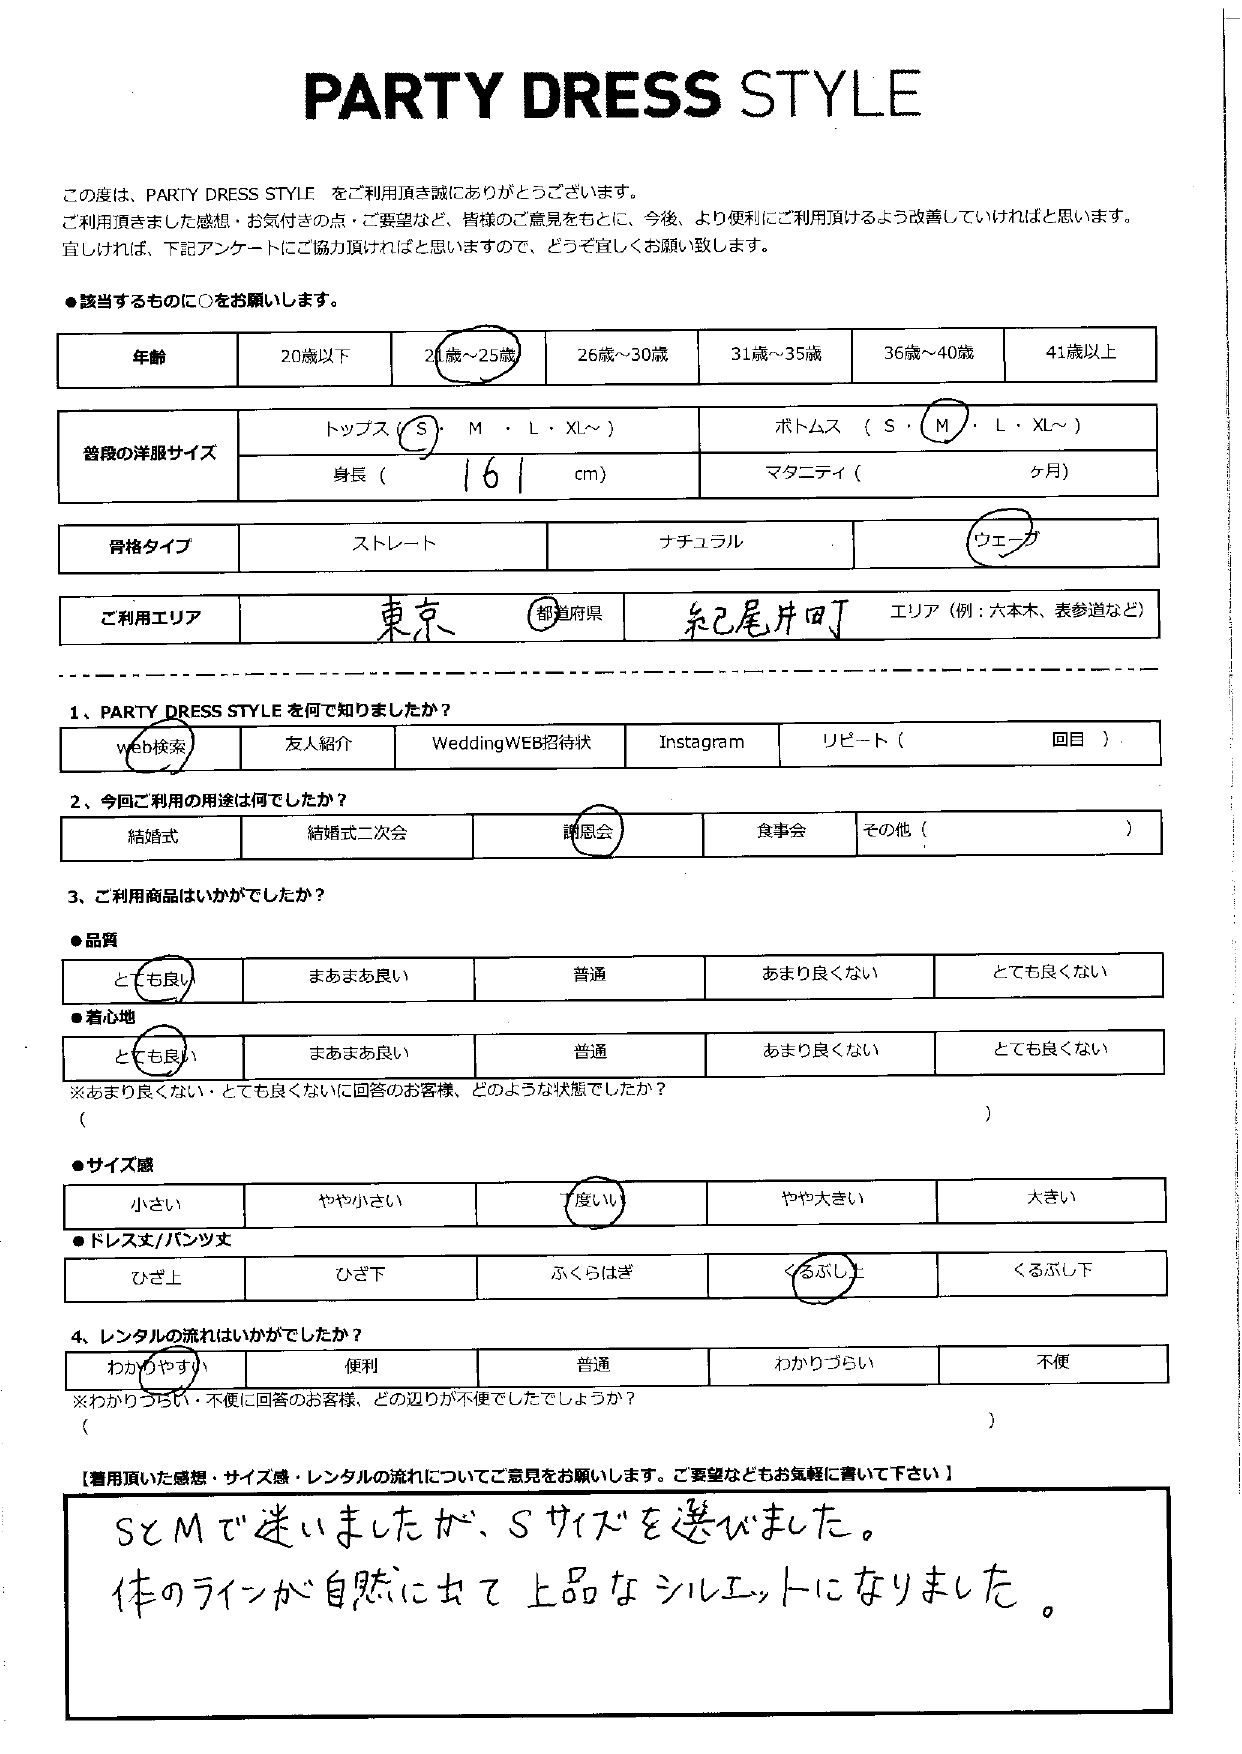 PARTY DRESS STYLE
この度は、PARTY DRESS STYLE をご利用頂き誠にありがとうございます。
ご利用頂きました感想・お気付きの点・ご要望など、皆様のご意見をもとに、今後、より便利にご利用頂けるよう改善していければと思います。
宜しければ、下記アンケートにご協力頂ければと思いますので、どうぞ宜しくお願い致します。
●該当するものに○をお願いします。
年齢 20歳以下 21歳～25歳 26歳～30歳 31歳～35歳 36歳～40歳 41歳以上
普段の洋服サイズ トップス ( S ・ M ・ L ・ XL～ ) ボトムス ( S ・ M ・ L ・ XL～ )
身長 ( 161 cm) マタニティ ( ヶ月)
骨格タイプ ストレート ナチュラル ウェーブ
ご利用エリア 東京 都道府県 紀尾井町 エリア（例：六本木、表参道など）
1、PARTY DRESS STYLE を何で知りましたか？
web検索 友人紹介 WeddingWEB招待状 Instagram リピート ( 回目 )
2、今回ご利用の用途は何でしたか？
結婚式 結婚式二次会 謝恩会 食事会 その他 ( )
3、ご利用商品はいかがでしたか？
●品質
とても良い まあまあ良い 普通 あまり良くない とても良くない
●着心地
とても良い まあまあ良い 普通 あまり良くない とても良くない
※あまり良くない・とても良くないに回答のお客様、どのような状態でしたか？
( )
●サイズ感
小さい やや小さい 丁度いい やや大きい 大きい
●ドレス丈/パンツ丈
ひざ上 ひざ下 ふくらはぎ くるぶし上 くるぶし下
4、レンタルの流れはいかがでしたか？
わかりやすい 便利 普通 わかりづらい 不便
※わかりづらい・不便に回答のお客様、どの辺りが不便でしたでしょうか？
( )
【着用頂いた感想・サイズ感・レンタルの流れについてご意見をお願いします。ご要望などもお気軽に書いて下さい】
SとMで迷いましたが、Sサイズを選びました。
体のラインが自然に出て上品なシルエットになりました。